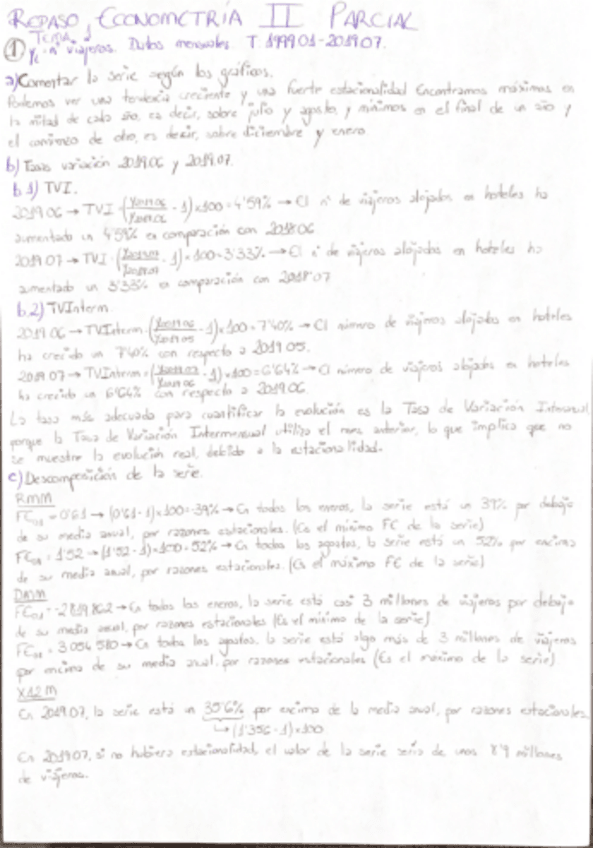 REPASO ECONOMETRÍA II PARCIAL
TEMA 1
① Yt = nº viajeros. Datos mensuales. T. 1999.01-2019.07.
a) Comentar la serie según los gráficos.
Podemos ver una tendencia creciente y una fuerte estacionalidad. Encontramos máximos en
la mitad de cada año, es decir, sobre julio y agosto, y mínimos en el final de un año y
el comienzo de otro, es decir, sobre diciembre y enero
b) Tasas variación 2019.06 y 2019.07.
b.1) TVI.
2019.06 → TVI = (Y2019.06/Y2018.06 - 1) x100 = 4'59% → El nº de viajeros alojados en hoteles ha
aumentado un 4'59% en comparación con 2018.06
2019.07 → TVI = (Y2019.07/Y2018.07 - 1) x100 = 3'33% → El nº de viajeros alojados en hoteles ha
aumentado un 3'33% en comparación con 2018.07
b.2) TVInterm
2019.06 → TVInterm = (Y2019.06/Y2019.05 - 1) x100 = 7'40% → El número de viajeros alojados en hoteles
ha crecido un 7'40% con respecto a 2019.05.
2019.07 → TVInterm = (Y2019.07/Y2019.06 - 1) x100 = 6'64% → El número de viajeros alojados en hoteles
ha crecido un 6'64% con respecto a 2019.06
La tasa más adecuada para cuantificar la evolución es la Tasa de Variación Interanual
porque la Tasa de Variación Intermensual utiliza el mes anterior, lo que implica que no
se muestre la evolución real, debido a la estacionalidad.
c) Descomposición de la serie.
RMM
FC01 = 0'61 → (0'61 - 1) x100 = -39% → En todos los eneros, la serie está un 39% por debajo
de su media anual, por razones estacionales. (Es el mínimo FC de la serie)
FC08 = 1'52 → (1'52 - 1) x100 = 52% → En todos los agostos, la serie está un 52% por encima
de su media anual, por razones estacionales. (Es el máximo FC de la serie)
DAMM
FC01 = -2819.862 → En todos los eneros, la serie está casi 3 millones de viajeros por debajo
de su media anual, por razones estacionales (Es el mínimo de la serie)
FC08 = 3 054 580 → En todos los agostos, la serie está algo más de 3 millones de viajeros
por encima de su media anual, por razones estacionales (Es el máximo de la serie)
X12M
En 2019.07, la serie está un 35'6% por encima de la media anual, por razones estacionales.
↳ (1'356 - 1) x100
En 2019.07, si no hubiera estacionalidad, el valor de la serie sería de unos 8'9 millones
de viajeros.